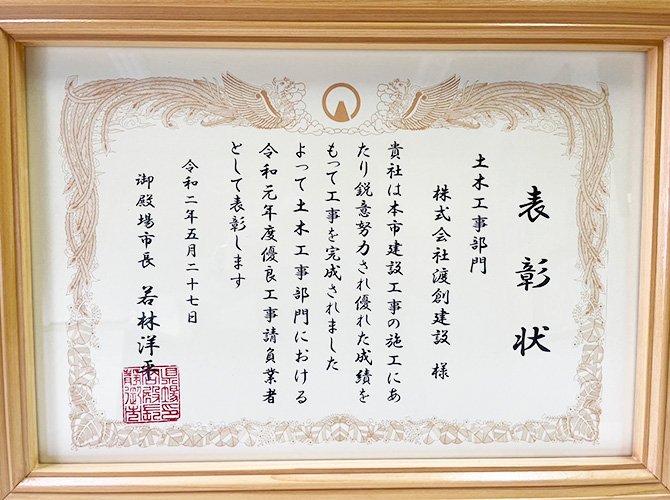 表彰状
土木工事部門
株式会社渡創建設 様
貴社は本市建設工事の施工にあ
たり鋭意努力され優れた成績を
もって工事を完成されました
よって土木工事部門における
令和元年度優良工事請負業者
として表彰します
令和二年五月二十七日
御殿場市長 若林洋平